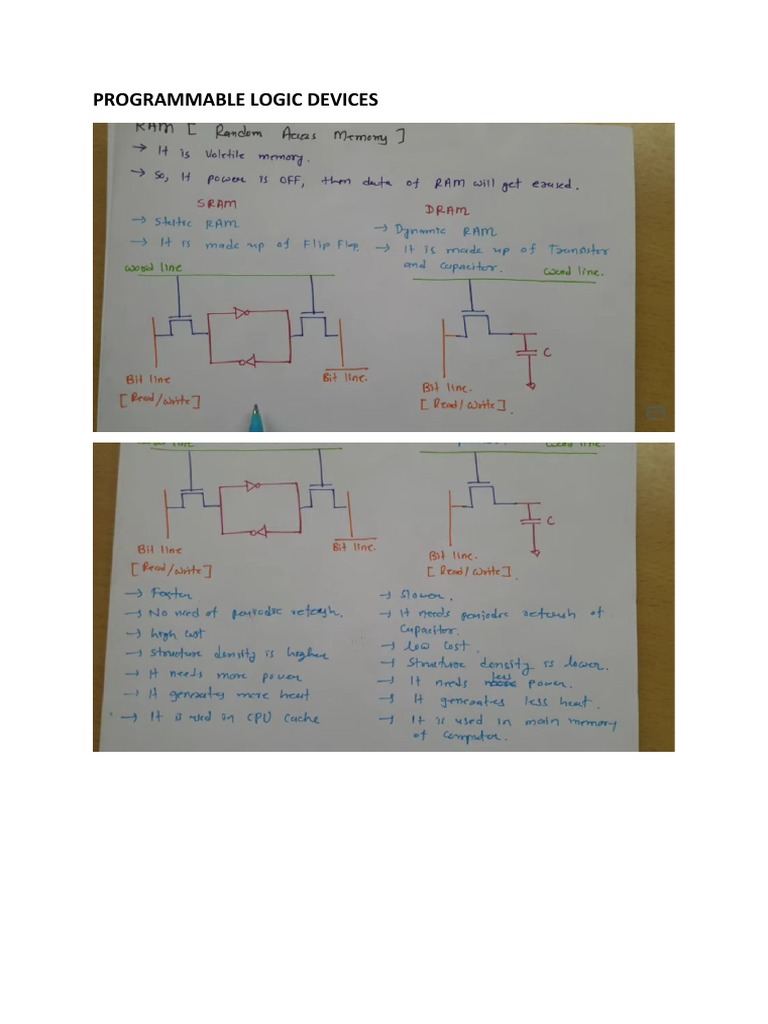 PROGRAMMABLE LOGIC DEVICES
RAM [ Random Access Memory ]
→ It is Voletile memory.
→ So, If power is OFF, then data of RAM will get erased.
SRAM
→ Static RAM
→ It is made up of Flip Flop.
word line
Bit line
[ Read/write ]
Bit line.
DRAM
→ Dynamic RAM
→ It is made up of Transistor
and capacitor.
word line.
C
Bit line.
[ Read/write ].
word line
Bit line
[ Read/write ]
Bit line.
→ Faster
→ No need of periodic refresh.
→ high cost
→ structure density is higher
→ It needs more power
→ It generates more heat
→ It is used in CPU cache
word line.
C
Bit line.
[ Read/write ].
→ Slower.
→ It needs periodic refresh of
capacitor.
→ low cost.
→ Structure density is lower.
→ It needs less power.
→ It generates less heat.
→ It is used in main memory
of computer.